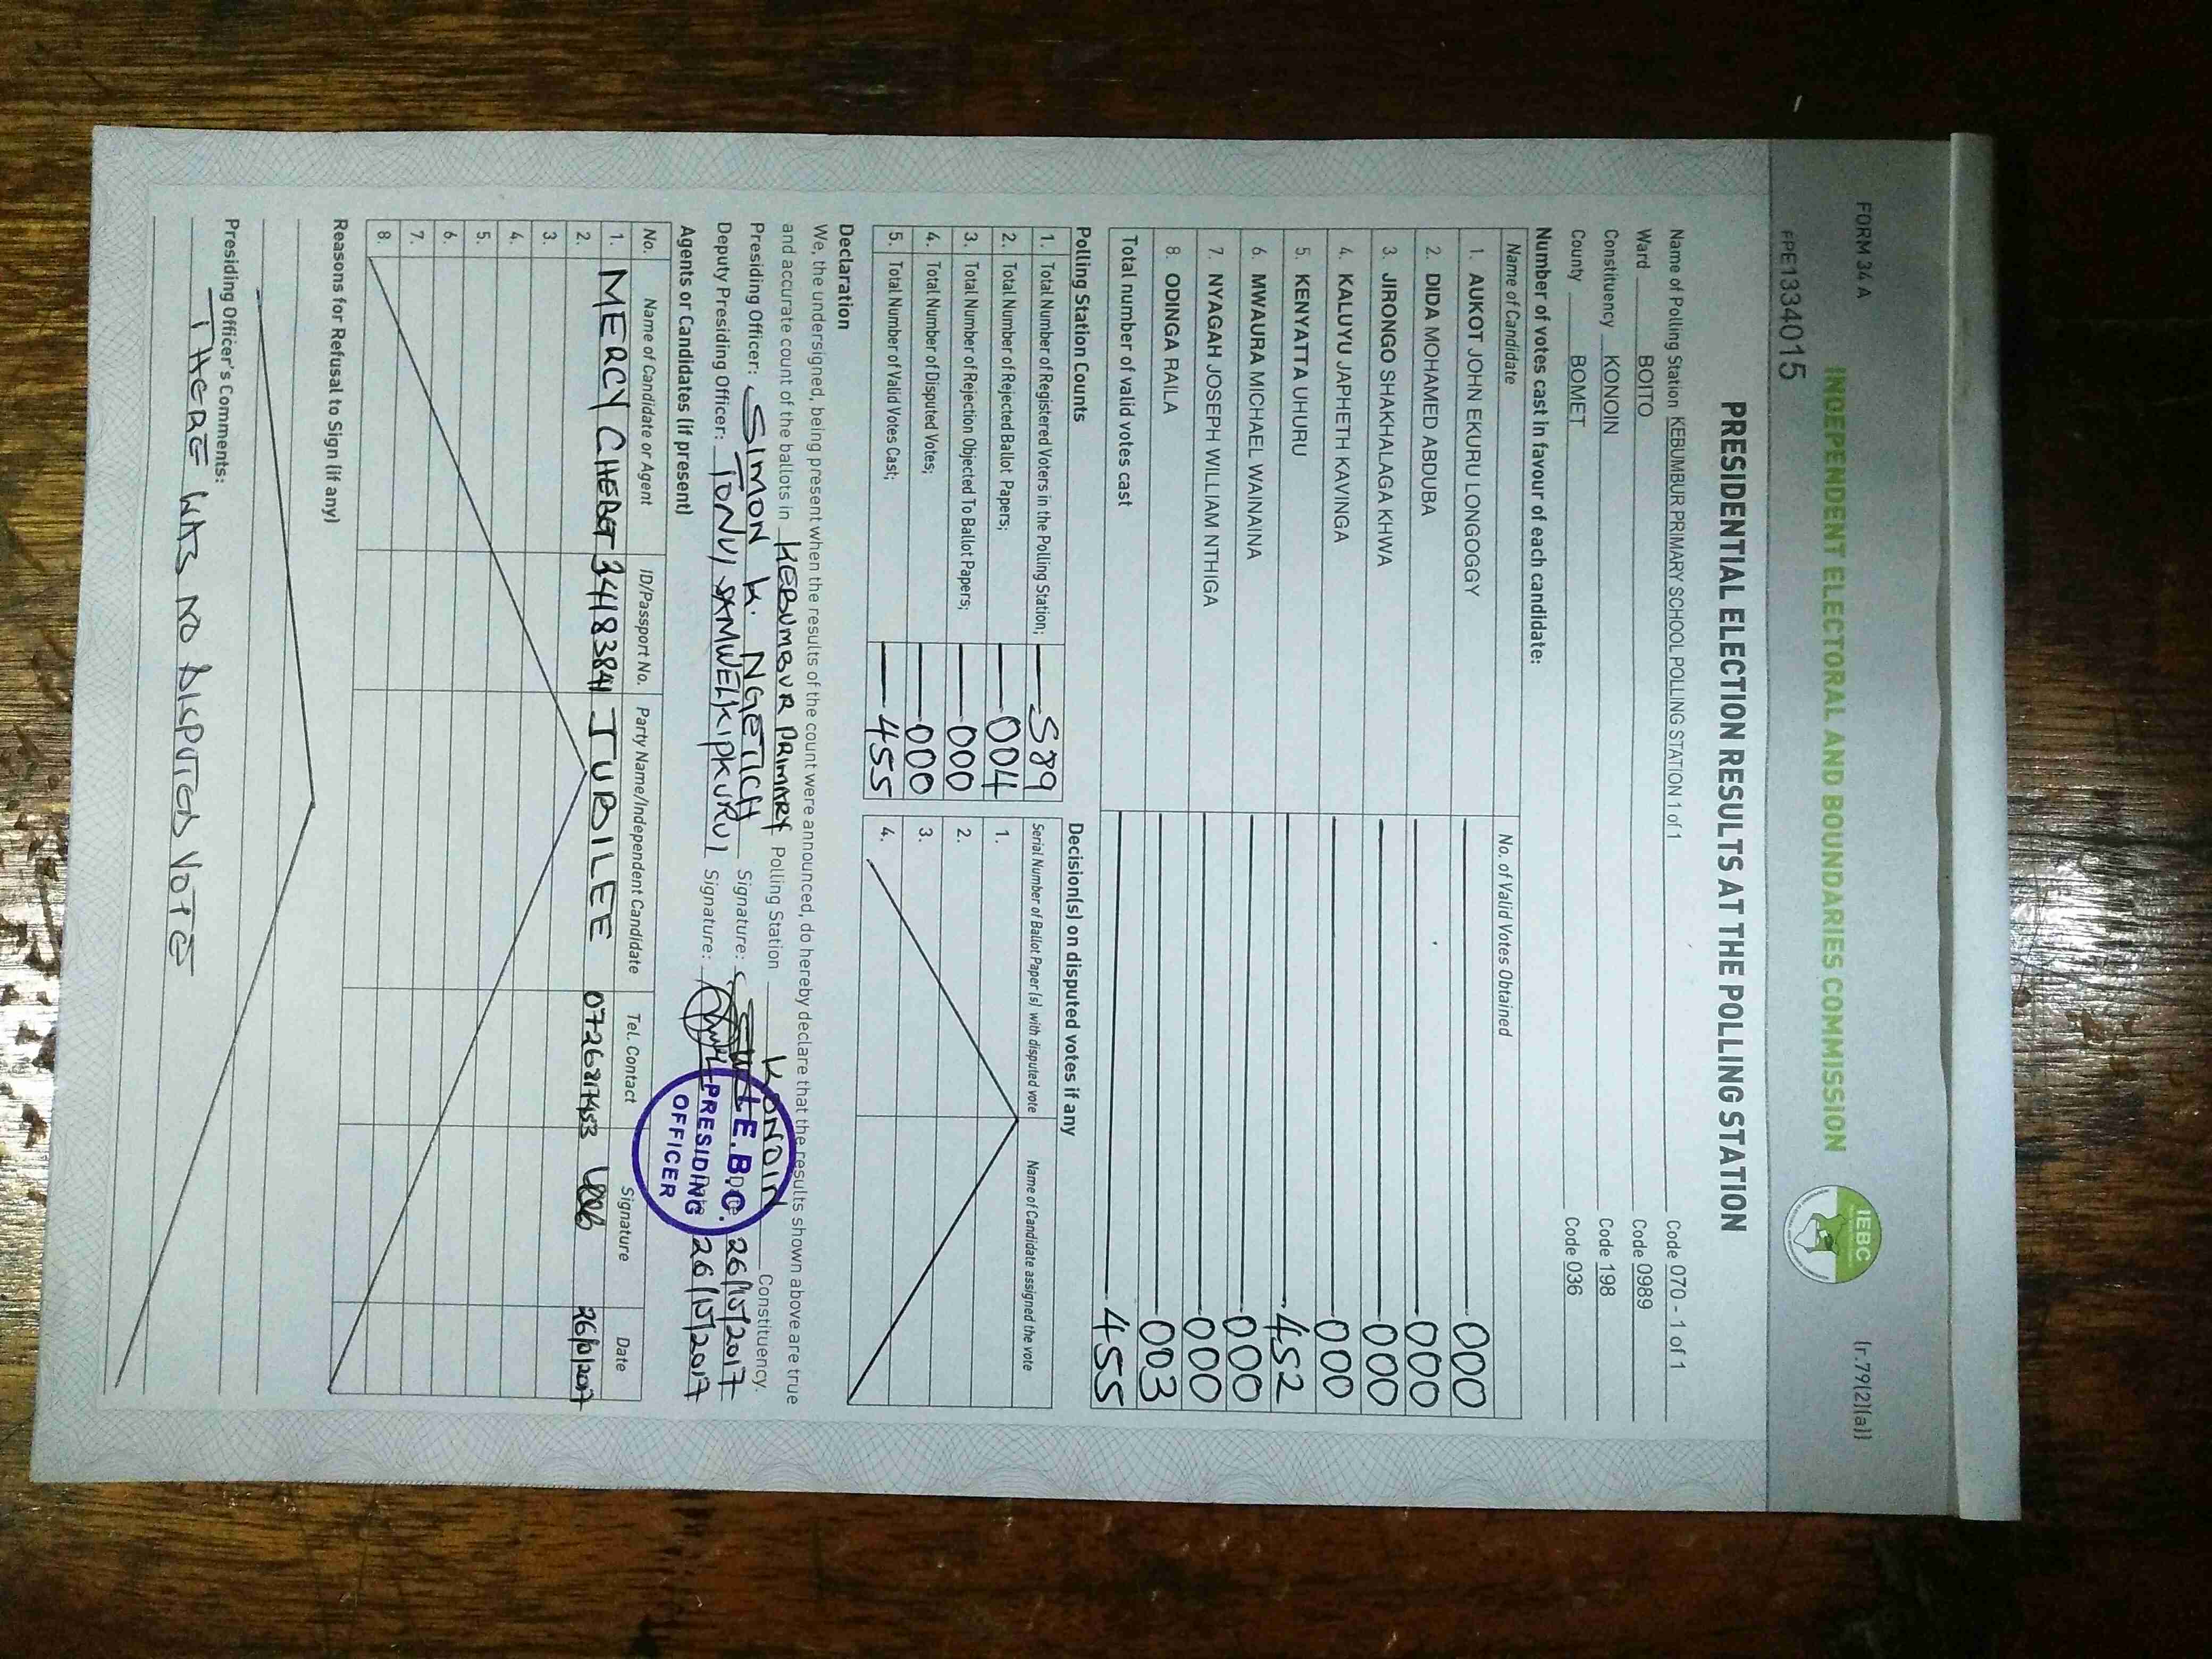 FORM 34 A
(r.79(2)(a))
INDEPENDENT ELECTORAL AND BOUNDARIES COMMISSION
IEBC
PE1334015
PRESIDENTIAL ELECTION RESULTS AT THE POLLING STATION
Name of Polling Station KEBUMBUR PRIMARY SCHOOL POLLING STATION 1 of 1 Code 070 - 1 of 1
Ward BOITO Code 0989
Constituency KONOIN Code 198
County BOMET Code 036
Number of votes cast in favour of each candidate:
Name of Candidate No. of Valid Votes Obtained
1. AUKOT JOHN EKURU LONGOGGY 000
2. DIDA MOHAMED ABDUBA 000
3. JIRONGO SHAKHALAGA KHWA 000
4. KALUYU JAPHETH KAVINGA 000
5. KENYATTA UHURU 452
6. MWAURA MICHAEL WAINAINA 000
7. NYAGAH JOSEPH WILLIAM NTHIGA 000
8. ODINGA RAILA 003
Total number of valid votes cast 455
Polling Station Counts
1. Total Number of Registered Voters in the Polling Station; 589
2. Total Number of Rejected Ballot Papers; 004
3. Total Number of Rejection Objected To Ballot Papers; 000
4. Total Number of Disputed Votes; 000
5. Total Number of Valid Votes Cast; 455
Decision(s) on disputed votes if any
Serial Number of Ballot Paper (s) with disputed vote Name of Candidate assigned the vote
1.
2.
3.
4.
Declaration
We, the undersigned, being present when the results of the count were announced, do hereby declare that the results shown above are true
and accurate count of the ballots in KEBUMBUR PRIMARY Polling Station KONOIN Constituency.
Presiding Officer: SIMON K. NGETICH Signature: 26/10/2017
Deputy Presiding Officer: TONUI SAMWEL KIPKURUI Signature: 26/10/2017
I.E.B.C.
PRESIDING
OFFICER
Agents or Candidates (if present)
No. Name of Candidate or Agent ID/Passport No. Party Name/Independent Candidate Tel. Contact Signature Date
1. MERCY CHEBET 34183841 JUBILEE 26/10/2017
2.
3.
4.
5.
6.
7.
8.
Reasons for Refusal to Sign (if any)
Presiding Officer's Comments:
THERE WAS NO DISPUTED VOTE